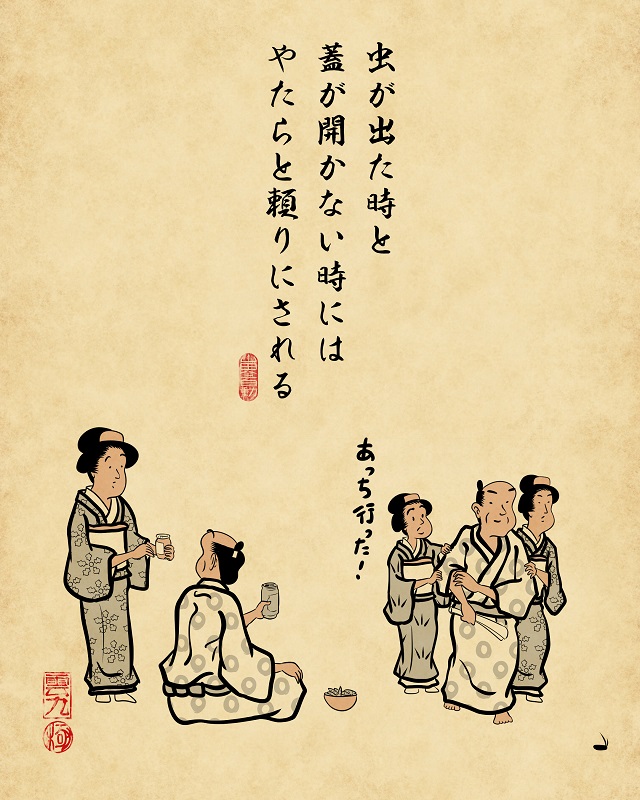 虫が出た時と
蓋が開かない時には
やたらと頼りにされる
あっち行った！